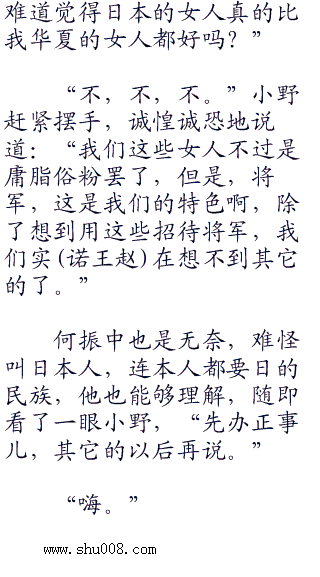 难道觉得日本的女人真的比
我华夏的女人都好吗？”
“不，不，不。”小野
赶紧摆手，诚惶诚恐地说
道：“我们这些女人不过是
庸脂俗粉罢了，但是，将
军，这是我们的特色啊，除
了想到用这些招待将军，我
们实(诺王赵)在想不到其它
的了。”
何振中也是无奈，难怪
叫日本人，连本人都要日的
民族，他也能够理解，随即
看了一眼小野，“先办正事
儿，其它的以后再说。”
“嗨。”
www.shu008.com